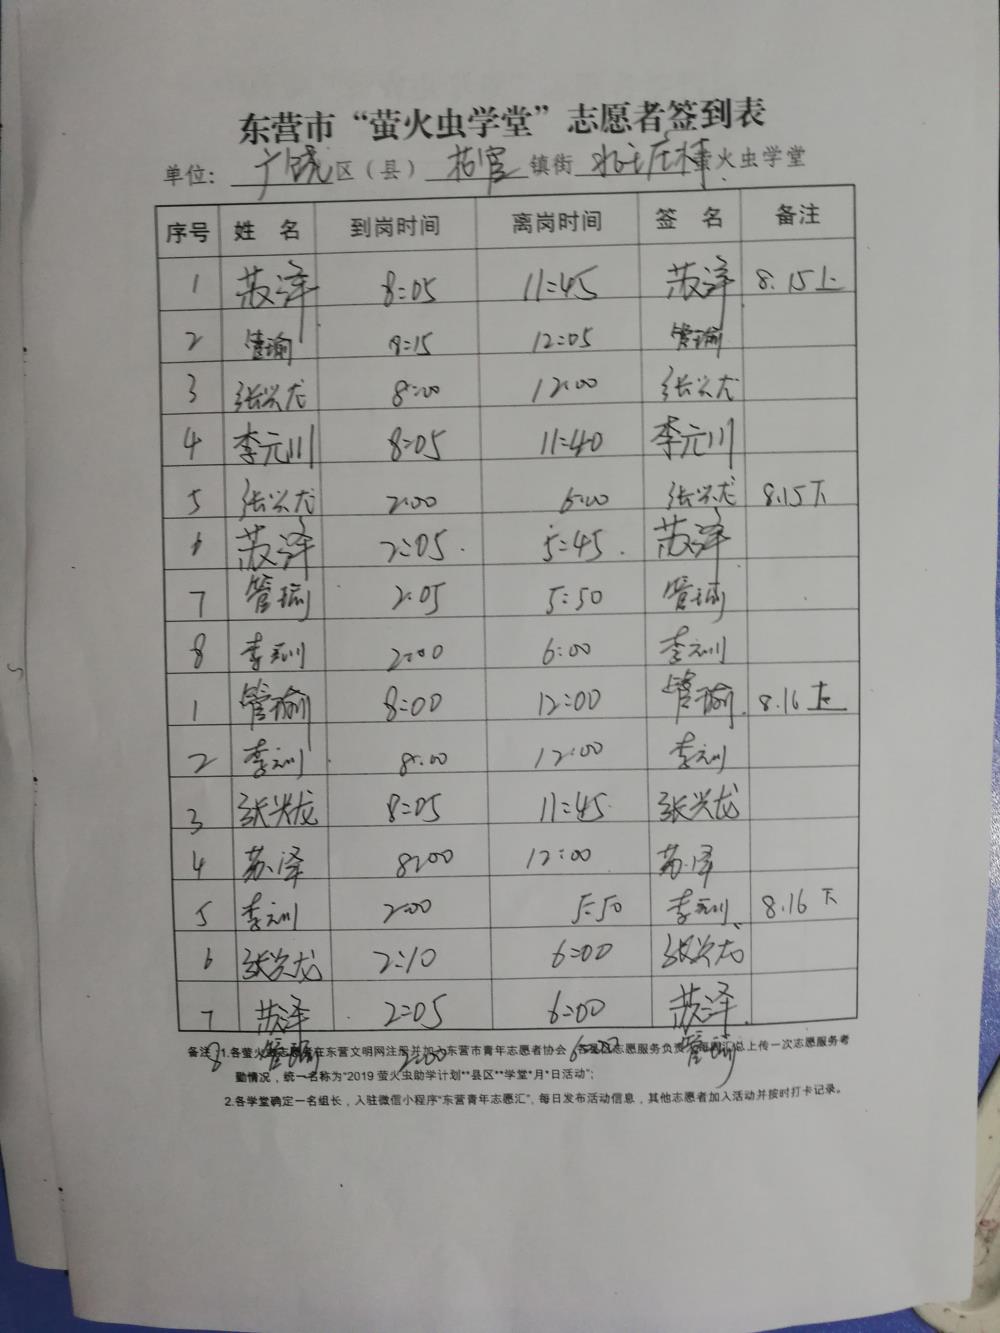 东营市“萤火虫学堂”志愿者签到表
单位：广饶区（县） 稻庄镇街 萤火虫学堂
序号 姓 名 到岗时间 离岗时间 签 名 备注
1 苏泽 8:05 11:45 苏泽 8.15上
2 管瑜 8:15 12:05 管瑜
3 张兴龙 8:00 12:00 张兴龙
4 李元川 8:05 11:40 李元川
5 张兴龙 2:00 6:00 张兴龙 8.15下
6 苏泽 2:05 5:45 苏泽
7 管瑜 2:05 5:50 管瑜
8 李元川 2:00 6:00 李元川
1 管瑜 8:00 12:00 管瑜 8.16上
2 李元川 8:00 12:00 李元川
3 张兴龙 8:05 11:45 张兴龙
4 苏泽 8:00 12:00 苏泽
5 李元川 2:00 5:50 李元川 8.16下
6 张兴龙 2:10 6:00 张兴龙
7 苏泽 2:05 6:00 苏泽
8 管瑜 2:00 6:00 管瑜
备注：1.各萤火虫志愿者在东营文明网注册并加入东营市青年志愿者协会，志愿服务负责上传一次志愿服务考
勤情况，统一名称为“2019 萤火虫助学计划**县区**学堂*月*日活动”；
2.各学堂确定一名组长，入驻微信小程序“东营青年志愿汇”，每日发布活动信息，其他志愿者加入活动并按时打卡记录。